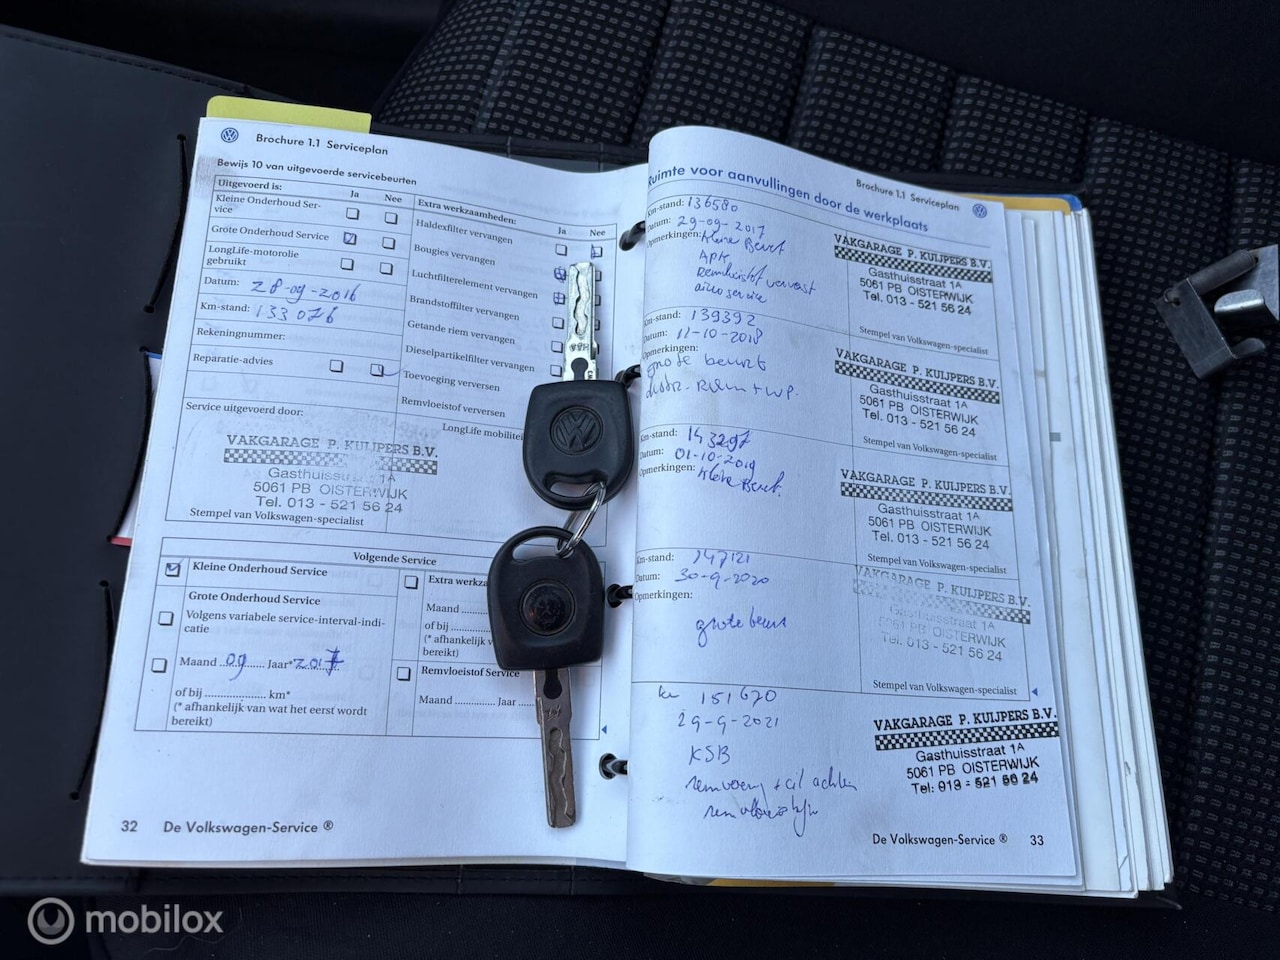 Brochure 1.1 Serviceplan
Bewijs 10 van uitgevoerde servicebeurten
Uitgevoerd is:
Ja
Nee
Kleine Onderhoud Ser-
vice
Grote Onderhoud Service
LongLife-motorolie
gebruikt
Datum: 28-09-2016
Km-stand: 133076
Rekeningnummer:
Reparatie-advies
Extra werkzaamheden:
Ja
Nee
Haldexfilter vervangen
Bougies vervangen
Luchtfilterelement vervangen
Brandstoffilter vervangen
Getande riem vervangen
Dieselpartikelfilter vervangen
Toevoeging verversen
Remvloeistof verversen
LongLife
Service uitgevoerd door:
VAKGARAGE P. KUIJPERS B.V.
Gasthuisstraat 1A
5061 PB OISTERWIJK
Tel. 013 - 521 56 24
Stempel van Volkswagen-specialist
Volgende Service
Kleine Onderhoud Service
Grote Onderhoud Service
Volgens variabele service-interval-indi-
catie
Maand 09 Jaar* 2017
of bij ............ km*
(* afhankelijk van wat het eerst wordt
bereikt)
Extra
Maand
of bij
(* afhankelijk
bereikt)
Remvloeistof Service
Maand ............ Jaar
32 De Volkswagen-Service ®
Brochure 1.1 Serviceplan
Ruimte voor aanvullingen door de werkplaats
Km-stand: 136580
Datum: 29-09-2017
Opmerkingen: Kleine Beurt
APK
Remvloeistof ververst
airco service
VAKGARAGE P. KUIJPERS B.V.
Gasthuisstraat 1A
5061 PB OISTERWIJK
Tel. 013 - 521 56 24
Stempel van Volkswagen-specialist
Km-stand: 139392
Datum: 11-10-2018
Opmerkingen:
grote beurt
distr. Riem + WP.
VAKGARAGE P. KUIJPERS B.V.
Gasthuisstraat 1A
5061 PB OISTERWIJK
Tel. 013 - 521 56 24
Stempel van Volkswagen-specialist
Km-stand: 143297
Datum: 01-10-2019
Opmerkingen: Kleine Beurt.
VAKGARAGE P. KUIJPERS B.V.
Gasthuisstraat 1A
5061 PB OISTERWIJK
Tel. 013 - 521 56 24
Stempel van Volkswagen-specialist
Km-stand: 147121
Datum: 30-9-2020
Opmerkingen:
grote beurt
VAKGARAGE P. KUIJPERS B.V.
Gasthuisstraat 1A
5061 PB OISTERWIJK
Tel. 013 - 521 56 24
Stempel van Volkswagen-specialist
km 151670
29-9-2021
KSB
remvoering + cil achter
VAKGARAGE P. KUIJPERS B.V.
Gasthuisstraat 1A
5061 PB OISTERWIJK
Tel: 013 - 521 56 24
De Volkswagen-Service ® 33
mobilox